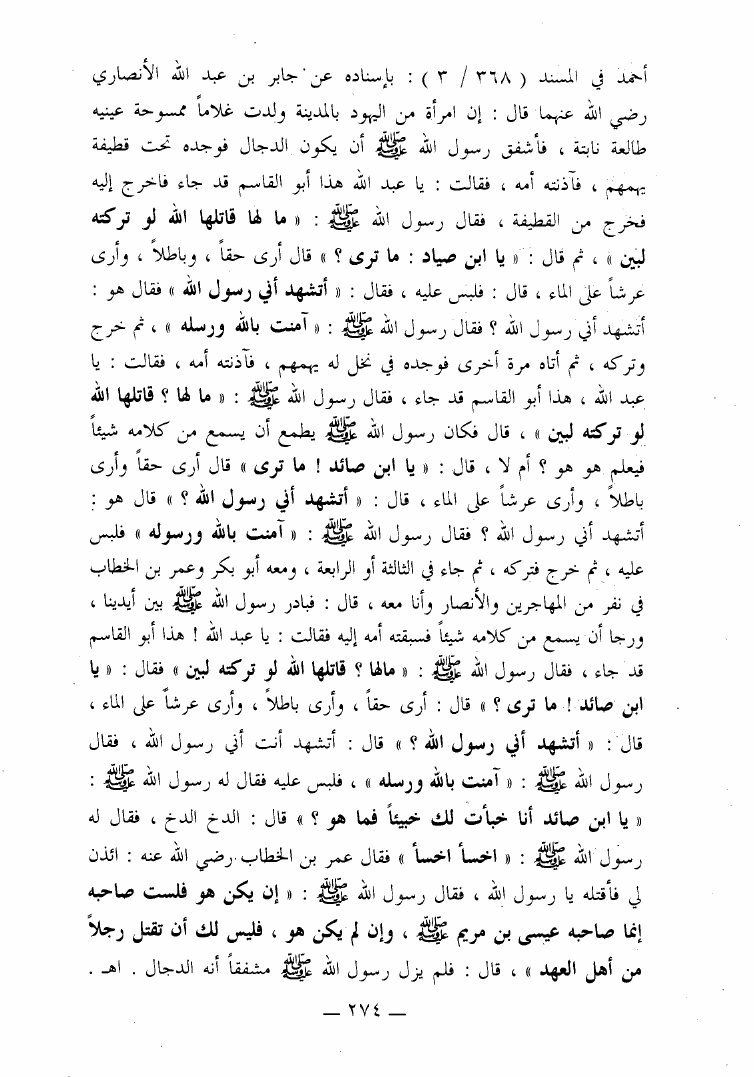 أحمد في المسند ( ٣٦٨ / ٣ ) : بإسناده عن جابر بن عبد الله الأنصاري
رضي الله عنهما قال : إن امرأة من اليهود بالمدينة ولدت غلاماً ممسوحة عينيه
طالعة نابتة ، فأشفق رسول الله ﷺ أن يكون الدجال فوجده تحت قطيفة
يهمهم ، فآذنته أمه ، فقالت : يا عبد الله هذا أبو القاسم قد جاء فاخرج إليه
فخرج من القطيفة ، فقال رسول الله ﷺ : « ما لها قاتلها الله لو تركته
لبين » ، ثم قال : « يا ابن صياد : ما ترى ؟ » قال أرى حقاً ، وباطلاً ، وأرى
عرشاً على الماء ، قال : فلبس عليه ، فقال : « أتشهد أني رسول الله » فقال هو :
أتشهد أني رسول الله ؟ فقال رسول الله ﷺ : « آمنت بالله ورسله » ، ثم خرج
وتركه ، ثم أتاه مرة أخرى فوجده في نخل له يهمهم ، فآذنته أمه ، فقالت : يا
عبد الله ، هذا أبو القاسم قد جاء ، فقال رسول الله ﷺ : « ما لها ؟ قاتلها الله
لو تركته لبين » ، قال فكان رسول الله ﷺ يطمع أن يسمع من كلامه شيئاً
فيعلم هو هو ؟ أم لا ، قال : « يا ابن صائد ! ما ترى » قال أرى حقاً وأرى
باطلاً ، وأرى عرشاً على الماء ، قال : « أتشهد أني رسول الله ؟ » قال هو :
أتشهد أني رسول الله ؟ فقال رسول الله ﷺ : « آمنت بالله ورسوله » فلبس
عليه ، ثم خرج فتركه ، ثم جاء في الثالثة أو الرابعة ، ومعه أبو بكر وعمر بن الخطاب
في نفر من المهاجرين والأنصار وأنا معه ، قال : فبادر رسول الله ﷺ بين أيدينا ،
ورجا أن يسمع من كلامه شيئاً فسبقته أمه إليه فقالت : يا عبد الله ! هذا أبو القاسم
قد جاء ، فقال رسول الله ﷺ : « مالها ؟ قاتلها الله لو تركته لبين » فقال : « يا
ابن صائد ! ما ترى ؟ » قال : أرى حقاً ، وأرى باطلاً ، وأرى عرشاً على الماء ،
قال : « أتشهد أني رسول الله ؟ » قال : أتشهد أنت أني رسول الله ، فقال
رسول الله ﷺ : « آمنت بالله ورسله » ، فلبس عليه فقال له رسول الله ﷺ :
« يا ابن صائد أنا خبأت لك خبيئاً فما هو ؟ » قال : الدخ الدخ ، فقال له
رسول الله ﷺ : « اخسأ اخسأ » فقال عمر بن الخطاب رضي الله عنه : ائذن
لي فأقتله يا رسول الله ، فقال رسول الله ﷺ : « إن يكن هو فلست صاحبه
إنما صاحبه عيسى بن مريم ﷺ ، وإن لم يكن هو ، فليس لك أن تقتل رجلاً
من أهل العهد » ، قال : فلم يزل رسول الله ﷺ مشفقاً أنه الدجال . اهـ .
— ٢٧٤ —